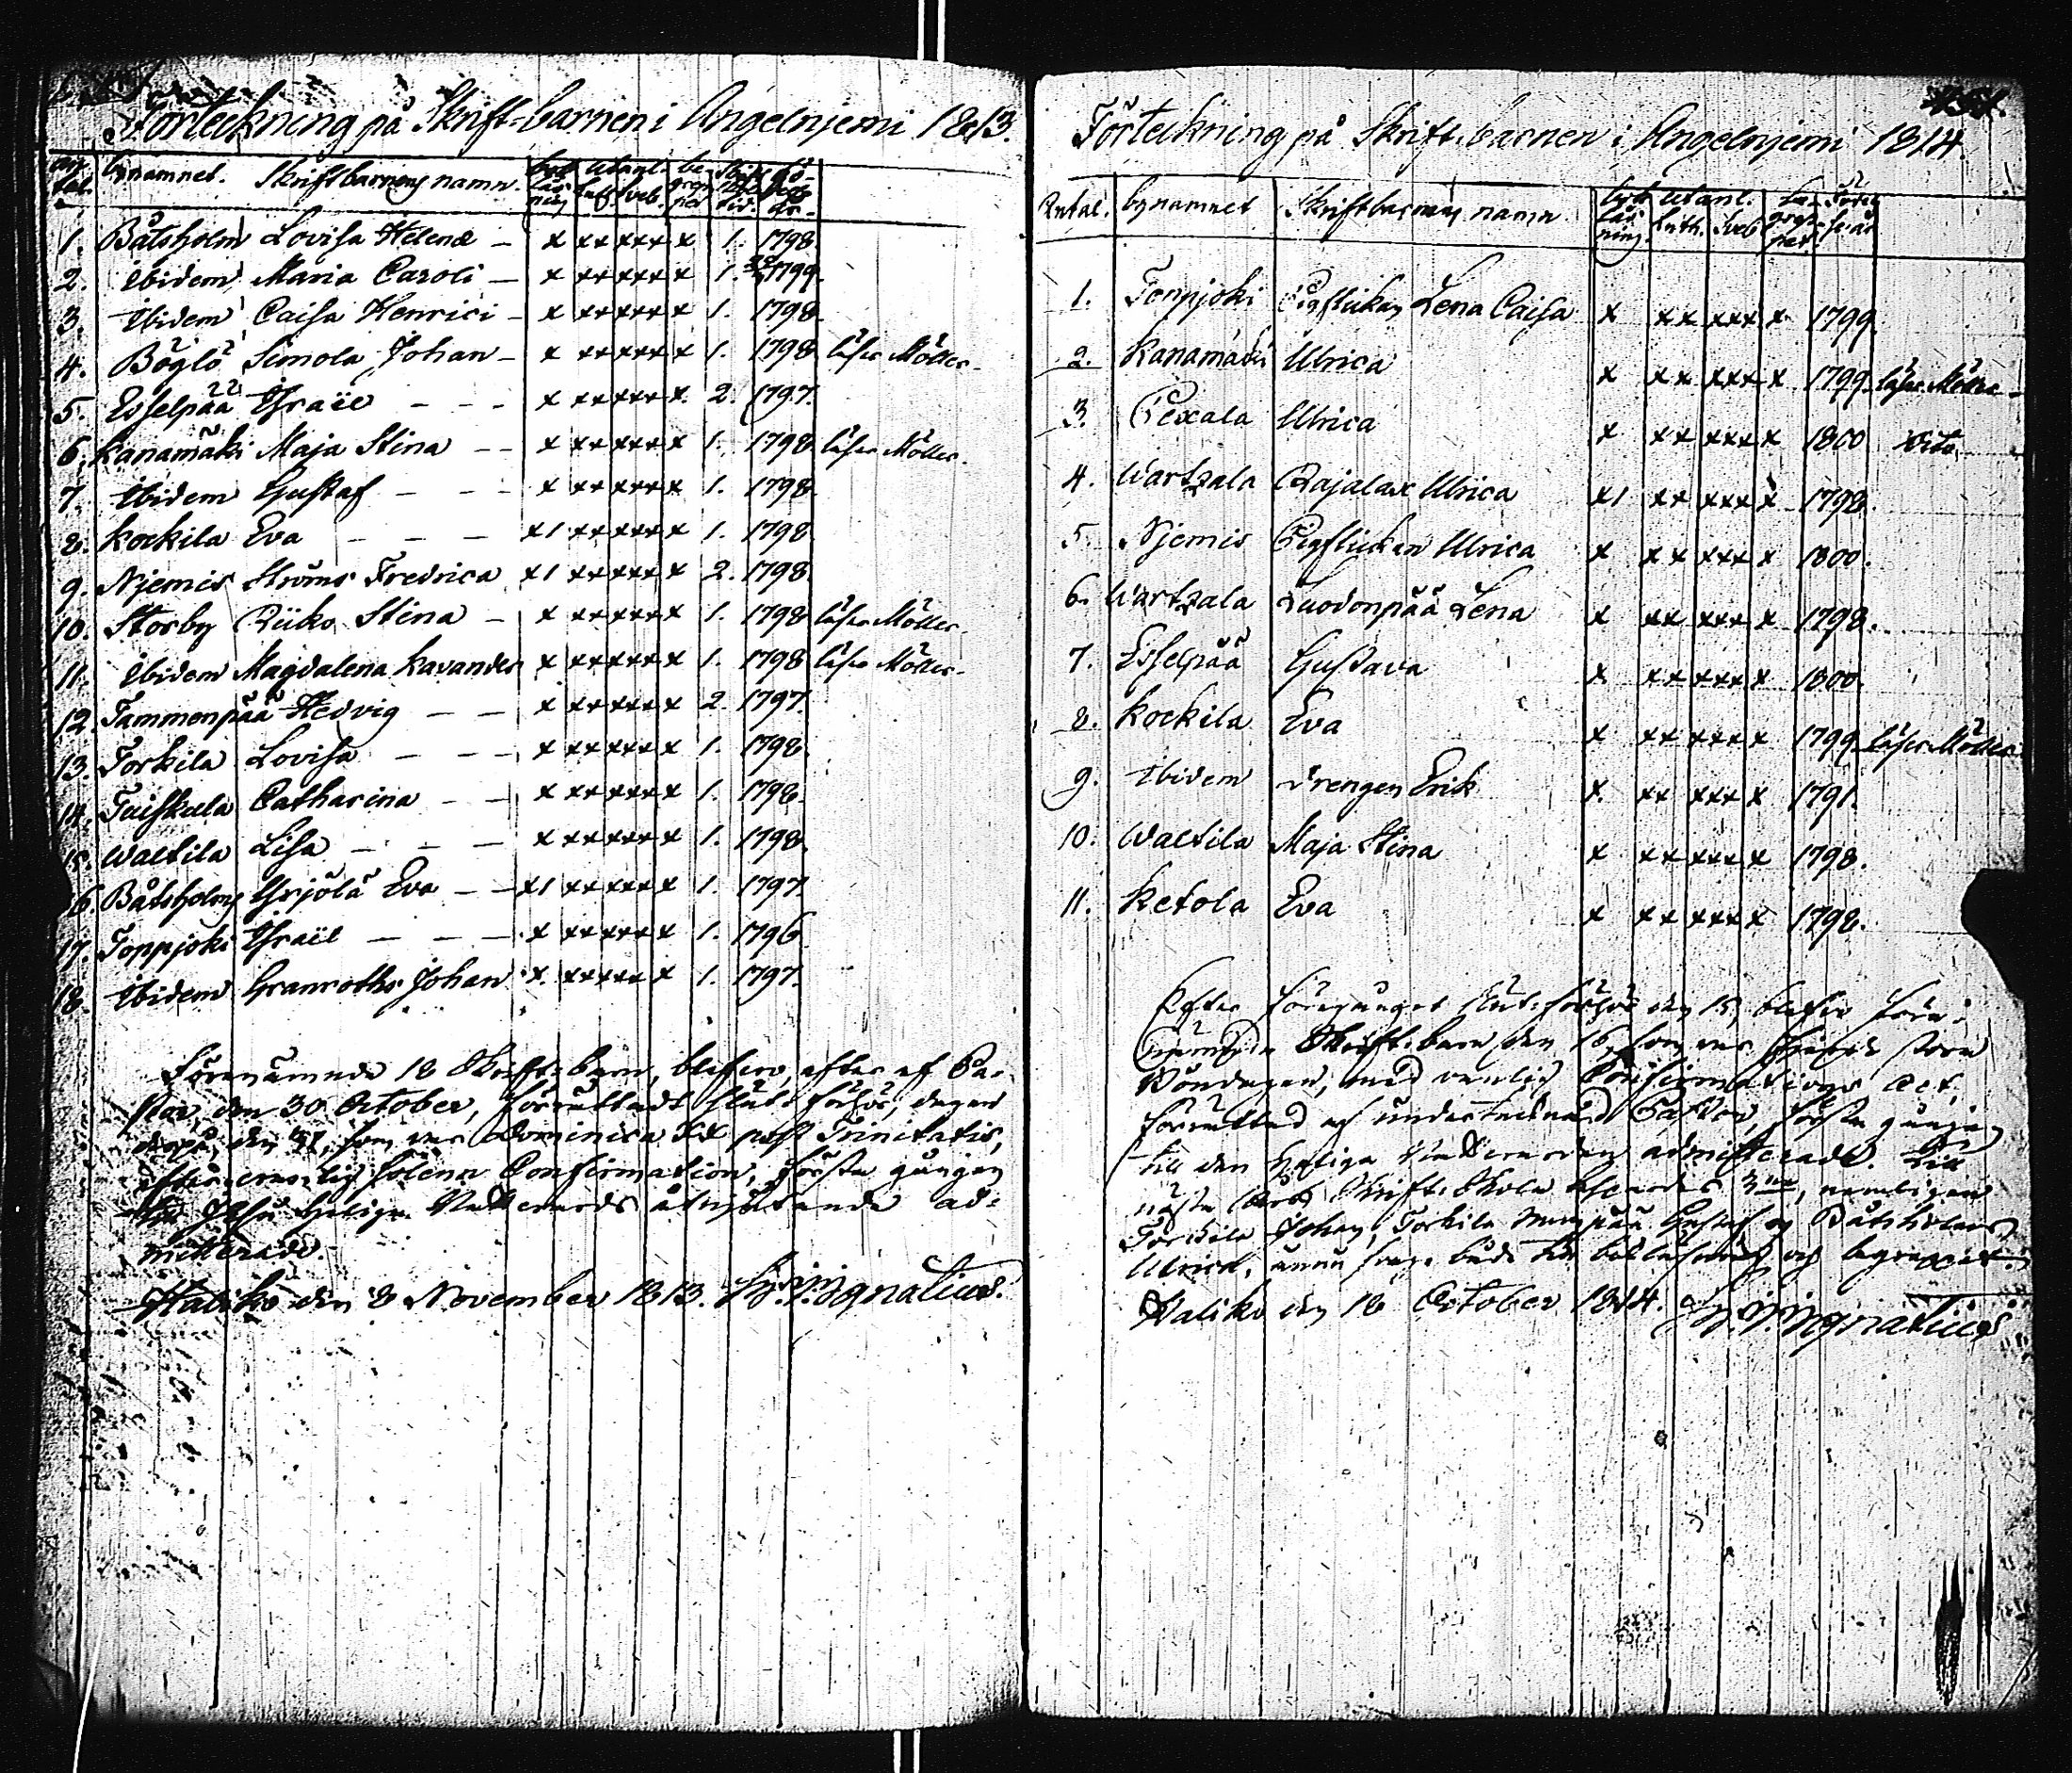 Förteckning på Skrift-barnen i Angelnjemi 1813.
an-tal. bynamnet. Skriftbarnens namn. bok läsning utanl. Luth. Sveb. begrepp Skrift tid. Födelse år.
1. Båtsholm Lovisa Helena – x xx xxx x 1. 1798.
2. Ibidem Maria Caroli – x xx xxx x 1. 1799.
3. Ibidem Caisa Henrici – x xx xxx x 1. 1798.
4. Böglö Simola Johan – x xx xxx x 1. 1798 läser Möller.
5. Esselpää Israël – – – x xx xxx x 2. 1797.
6. Kanamäki Maja Stina – – x xx xxx x 1. 1798 läser Möller.
7. Ibidem Gustaf – – – x xx xxx x 1. 1798.
8. Kockila Eva – – – x1 xx xxx x 1. 1798
9. Njemis Ströms Fredrica x1 xx xxx x 2. 1798.
10. Storby Riiko Stina – x xx xxx x 1. 1798 läser Möller.
11. Ibidem Magdalena Kavander x xx xxx x 1. 1798 läser Möller.
12. Tammenpää Hedvig – – x xx xxx x 2. 1797.
13. Torkila Lovisa – – – x xx xxx x 1. 1798.
14. Tuiskula Catharina – – x xx xxx x 1. 1798.
15. Waltila Lisa – – – x xx xxx x 1. 1798.
16. Båtsholm Yrjölä Eva – – x1 xx xxx x 1. 1797.
17. Toppjoki Israël – – – x xx xxx x 1. 1796
18. Ibidem Granroths Johan x. xx xxx x 1. 1797.
Förenämnde 18 Skrift-barn, blefvo, efter af Pa-
stor, den 30 October, förrättadt slut-förhör, dagen
derpå, den 31, som var Dominica XX post Trinitatis,
efter solenn Confirmation, första gången
till Jesu Heliga Nattvards åtnjutande ad-
mitterade.
Haliko den 8 November 1813. Ignatius.
Förteckning på Skrift-barnen i Angelnjemi 1814.
Antal. bynamnet Skriftbarnens namn bok läsning utanl. Luth. Sveb. begreppet Födelse år
1. Toppjoki Pigflickan Lena Caisa x xx xxx x 1799.
2. Kanamäki Ulrica x xx xxx x 1799. läser Möller
3. Pexala Ulrica x xx xxx x 1800 dito
4. Wartsala Rajalax Ulrica x1 xx xxx x 1798.
5. Njemis Pigflickan Ulrica x xx xxx x 1800.
6. Wartsala Luodonpää Lena x xx xxx x 1798.
7. Esselpää Gustava x xx xxx x 1800.
8. Kockila Eva x xx xxx x 1799. läser Möller
9. Ibidem drengen Erik x. xx xxx x 1791.
10. Waltila Maja Stina x xx xxx x 1798.
11. Ketola Eva x xx xxx x 1798.
Efter föregånget slut-förhör den 15, blefvo före-
nämnde Skrift-barn den 16, som var stora
Böndagen, med vanlig Confirmations Act,
förrättad af undertecknad Pastor, första gången
till den heliga Nattvarden admitterade. Till
nästa Skrift-Skola 3ne, nemligen
Torkila Johan, Torkila Gustaf och Båtsholms
Ulrica, ännu både till bokläsning och begreppet.
Haliko den 18 October 1814. Ignatius